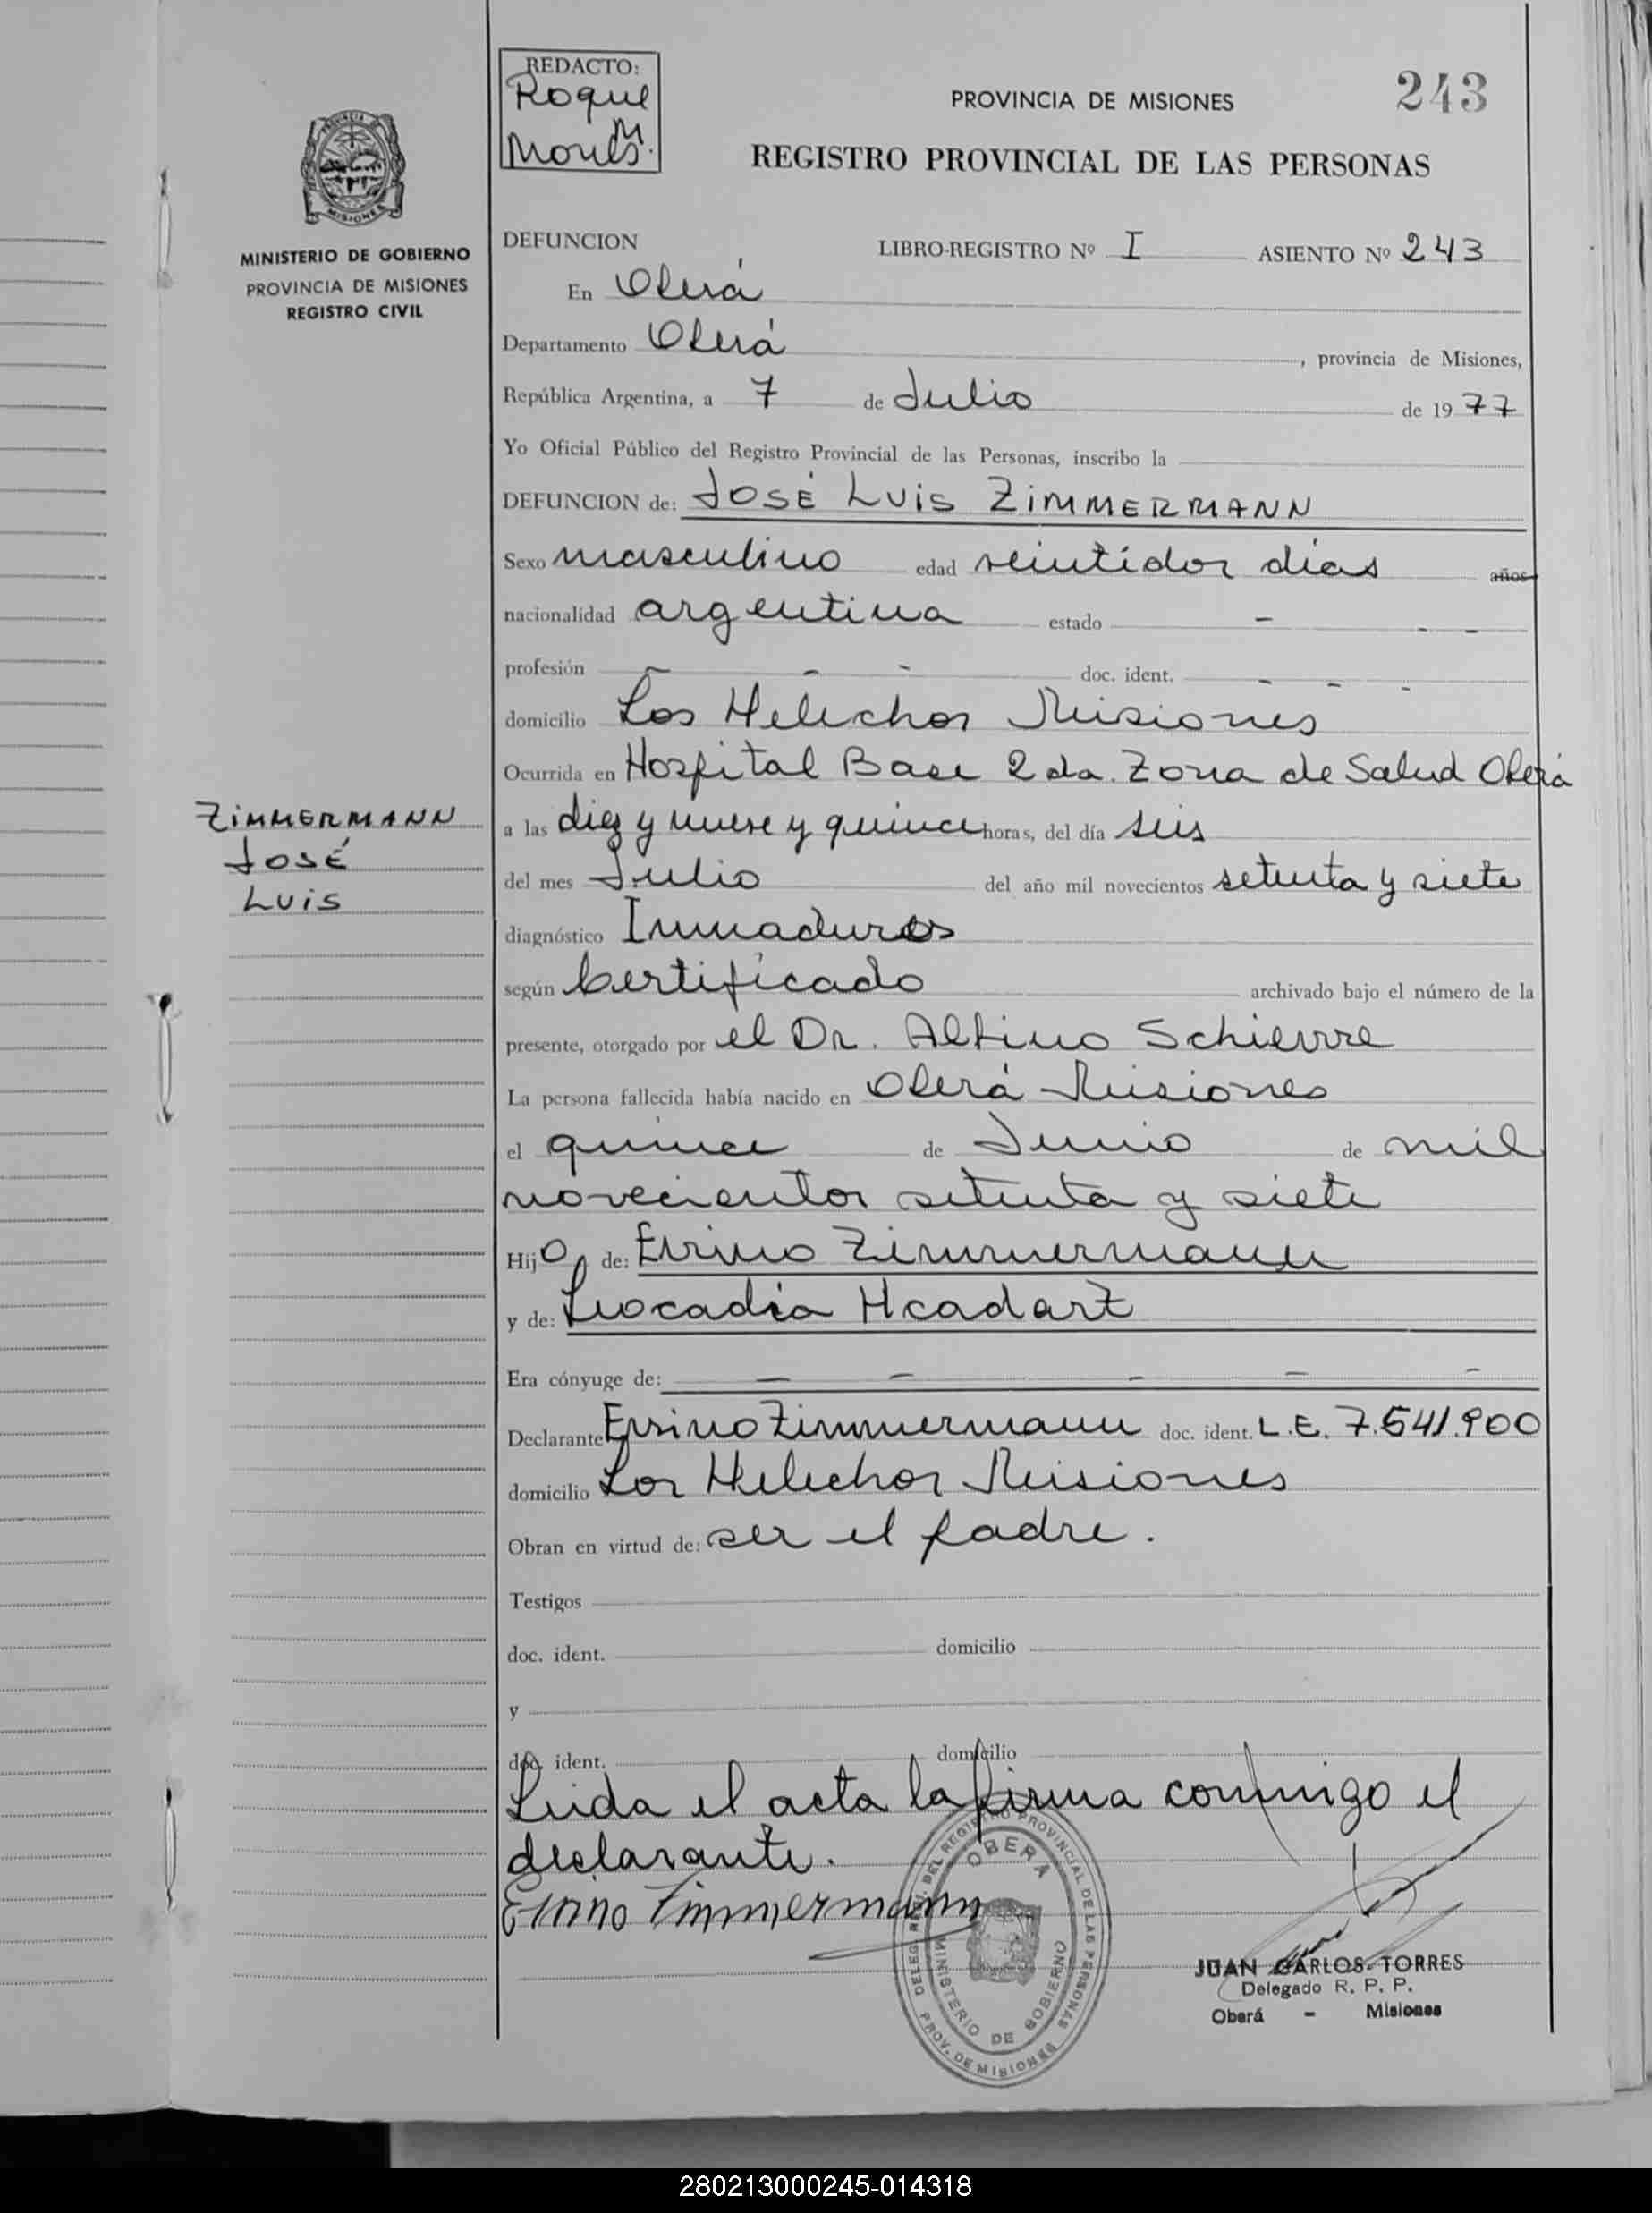 REDACTO:
Roque
243
PROVINCIA DE MISIONES
REGISTRO PROVINCIAL DE LAS PERSONAS
PROVINCIA
MISIONES
MINISTERIO DE GOBIERNO
PROVINCIA DE MISIONES
REGISTRO CIVIL
DEFUNCION LIBRO-REGISTRO Nº I ASIENTO Nº 243
En Oberá
Departamento Oberá, provincia de Misiones,
República Argentina, a 7 de Julio de 1977
Yo Oficial Público del Registro Provincial de las Personas, inscribo la
DEFUNCION de: JOSÉ LUIS ZIMMERMANN
Sexo masculino edad veintidos días años
nacionalidad argentina estado - - -
profesión - - - doc. ident. - - -
domicilio Los Helechos Misiones
Ocurrida en Hospital Base 2da. Zona de Salud Oberá
ZIMMERMANN
JOSÉ
LUIS
a las diez y nueve y quince horas, del día seis
del mes Julio del año mil novecientos setenta y siete
diagnóstico Inmaduros
según Certificado archivado bajo el número de la
presente, otorgado por el Dr. Albino
La persona fallecida había nacido en Oberá Misiones
el quince de Junio de mil
novecientos setenta y siete
Hijo de: Ervino Zimmermann
y de: Leocadia Hcadart
Era cónyuge de: - - - - -
Declarante Ervino Zimmermann doc. ident. L.E. 7.541.900
domicilio Los Helechos Misiones
Obran en virtud de: ser el padre.
Testigos
doc. ident. domicilio
y
doc. ident. domicilio
Leida el acta la firma conmigo el
declarante.
Ervino Zimmermann
DELEG. REG. DEL REGISTRO PROVINCIAL DE LAS PERSONAS
OBERA
MINISTERIO DE GOBIERNO
PROV. DE MISIONES
JUAN CARLOS TORRES
Delegado R. P. P.
Oberá - Misiones
280213000245-014318